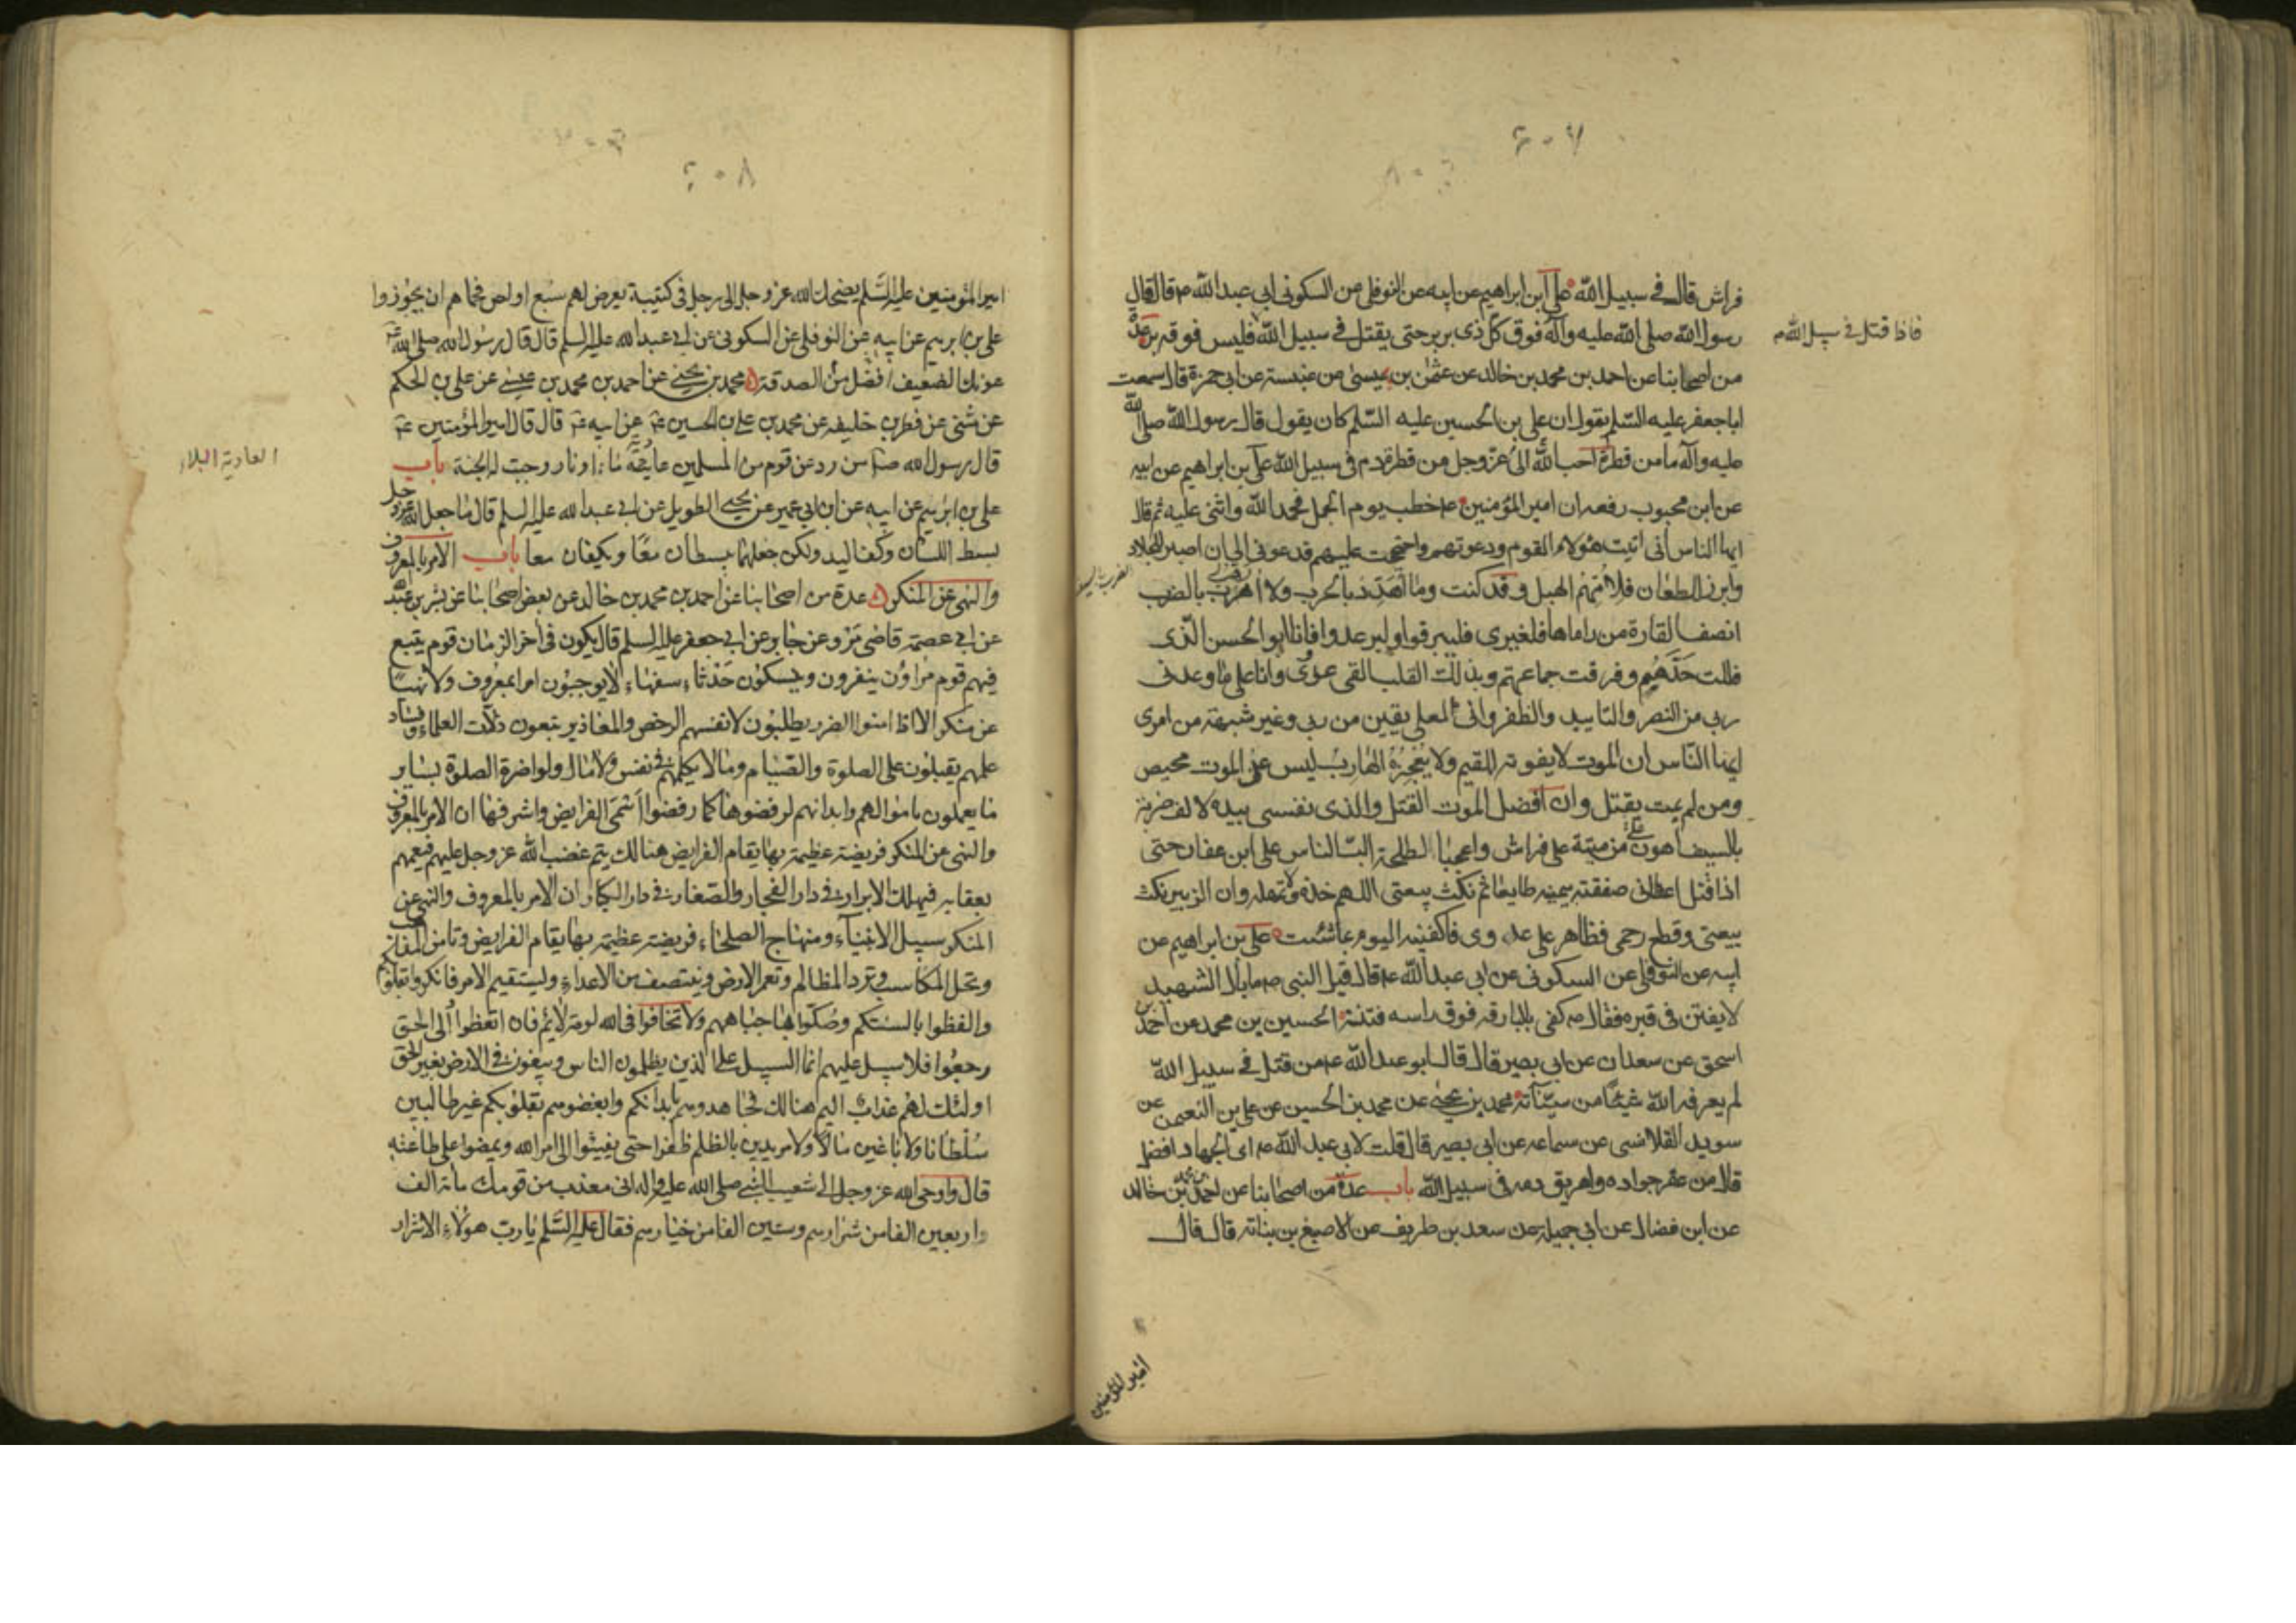 ٤٠٧
فراش قال في سبيل الله علي ابن ابراهيم عن ابيه عن النوفلي عن السكوني ابي عبد الله ع قال قال
رسول الله صلى الله عليه وآله فوق كل ذى بر بر حتى يقتل في سبيل الله فليس فوقه بر عدة
فاذا قتل في سبيل الله م
من اصحابنا عن احمد بن محمد بن خالد عن عثمن بن عيسى عن عنبسة عن ابي حمزة قال سمعت
ابا جعفر عليه السلم يقول ان علي بن الحسين عليه السلم كان يقول قال رسول الله صلى الله
عليه وآله ما من قطرة احب الى الله عز وجل من قطرة دم في سبيل الله علي بن ابراهيم عن ابيه
عن ابن محبوب رفعه ان امير المؤمنين ع خطب يوم الجمل فحمد الله واثنى عليه ثم قال
ايها الناس انى اتيت هؤلاء القوم ودعوتهم واحتججت عليهم فدعوني الى ان اصبر للجلاد
وابرز للطعان فلامهم الهبل وقد كنت وما اهدد بالحرب ولا ارهب بالضرب
انصف القارة من راماها فلغيرى فليبرقوا وليرعدوا فانا ابو الحسن الذى
فللت حدهم وفرقت جماعتهم وبذلك القلب القى عدوى وانا على ما وعدنى
ربي من النصر والتاييد والظفر وانى لعلى يقين من ربي وغير شبهة من امرى
ايها الناس ان الموت لا يفوته المقيم ولا يعجزه الهارب ليس عن الموت محيص
ومن لم يمت يقتل وان افضل الموت القتل والذى نفسى بيده لالف ضربة
بالسيف اهون علي من ميتة على فراش واعجبا لطلحة الب الناس على ابن عفان حتى
اذا قتل اعطانى صفقته بيمينه طايعا ثم نكث بيعتى اللهم خذه ولا تمهله وان الزبير نكث
بيعتى وقطع رحمى وظاهر على عدوى فاكفنيه اليوم بما شئت علي بن ابراهيم عن
ابيه عن النوفلي عن السكوني عن ابي عبد الله ع قال قيل للنبي ص ما بال الشهيد
لا يفتن في قبره فقال ص كفى بالبارقة فوق راسه فتنة الحسين بن محمد عن احمد بن
اسحق عن سعدان عن ابي بصير قال قال ابو عبد الله ع من قتل في سبيل الله
لم يعرفه الله شيئا من سيئاته محمد بن يحيى عن محمد بن الحسين عن علي بن النعمن عن
سويد القلانسى عن سماعة عن ابي بصير قال قلت لابي عبد الله ع اى الجهاد افضل
قال من عقر جواده واهريق دمه في سبيل الله باب عدة من اصحابنا عن احمد بن محمد بن خالد
عن ابن فضال عن ابي جميلة عن سعد بن طريف عن الاصبغ بن نباته قال قال
امير المؤمنين
٤٠٨
امير المؤمنين عليه السلم يضحك الله عز وجل الى رجل في كتيبة يعرض لهم سبع او لص فحماهم ان يجوزوا
علي بن ابرهيم عن ابيه عن النوفلي عن السكوني عن ابي عبد الله عليه السلم قال قال رسول الله صلى الله
عونك الضعيف افضل من الصدقة محمد بن يحيى عن احمد بن محمد بن عيسى عن علي بن الحكم
عن مثنى عن فطر بن خليفه عن محمد بن علي بن الحسين ع عن ابيه ع قال قال امير المؤمنين ع
قال رسول الله ص من رد عن قوم من المسلمين عادية ماء او نار وجبت له الجنة باب
العادية البلاء
علي بن ابرهيم عن ابيه عن ابن ابي عمير عن يحيى الطويل عن ابي عبد الله عليه السلم قال ما جعل الله عز وجل
بسط اللسان وكف اليد ولكن جعلهما يبسطان معا ويكفان معا باب الامر بالمعروف
والنهى عن المنكر عدة من اصحابنا عن احمد بن محمد بن خالد عن بعض اصحابنا عن بشر بن عبد الله
عن ابي عصمة قاضى مرو عن جابر عن ابي جعفر عليه السلم قال يكون في آخر الزمان قوم يتبع
فيهم قوم مراؤن ينفرون وينسكون حدثاء سفهاء لا يوجبون امرا بمعروف ولا نهيا
عن منكر الا اذا امنوا الضرر يطلبون لانفسهم الرخص والمعاذير يتبعون زلات العلماء وفساد
علمهم يقبلون على الصلوة والصيام وما لا يكلمهم في نفس ولا مال ولو اضرة الصلوة بساير
ما يعملون باموالهم وابدانهم لرفضوها كما رفضوا اسمى الفرايض واشرفها ان الامر بالمعروف
والنهى عن المنكر فريضة عظيمة بها يقام الفرايض هنالك يتم غضب الله عز وجل عليهم فيعمهم
بعقابه فيهلك الابرار في دار الفجار والصغار في دار الكبار ان الامر بالمعروف والنهى عن
المنكر سبيل الانبياء ومنهاج الصلحاء فريضة عظيمة بها يقام الفرايض وتامن المذاهب
وتحل المكاسب وترد المظالم وتعمر الارض وينتصف من الاعداء وليستقيم الامر فانكروا بقلوبكم
والفظوا بالسنتكم وصكوا بها جباههم ولا تخافوا في الله لومة لائم فان اتعظوا والى الحق
رجعوا فلا سبيل عليهم انما السبيل على الذين يظلمون الناس ويبغون في الارض بغير الحق
اولئك لهم عذاب اليم هنالك فجاهدوهم بابدانكم وابغضوهم بقلوبكم غير طالبين
سلطانا ولا باغين مالا ولا مريدين بالظلم ظفرا حتى يفيئوا الى امر الله ويمضوا على طاعته
قال واوحى الله عز وجل الى شعيب النبي صلى الله عليه واله انى معذب من قومك مائة الف
واربعين الفا من شرارهم وستين الفا من خيارهم فقال عليه السلم يا رب هؤلاء الاشرار